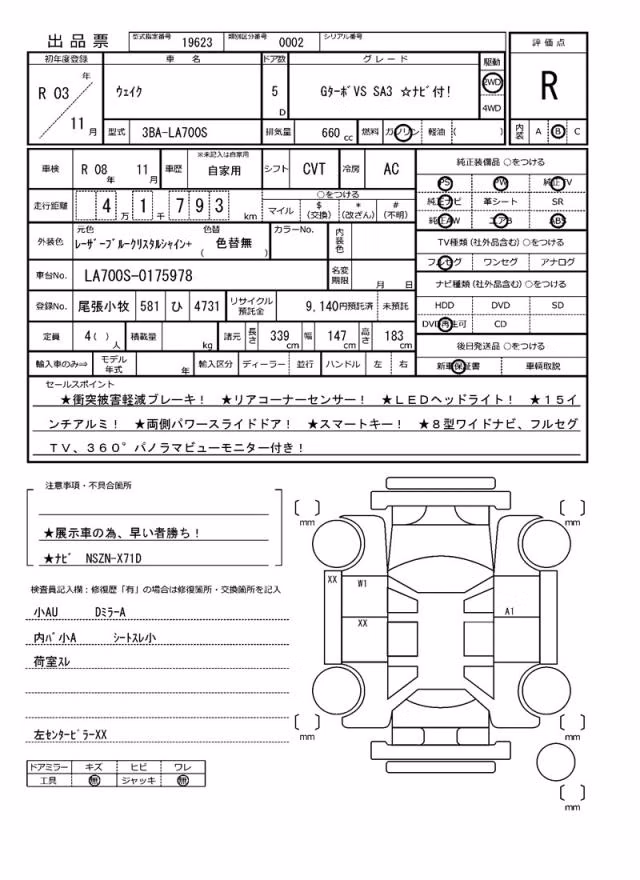 出品票 型式指定番号 19623 類別区分番号 0002 シリアル番号
初年度登録 車名 ドア数 グレード 駆動 評価点
R 03 年 ウェイク 5 D Gターボ VS SA3 ☆ナビ付! 2WD 4WD R
11 月 型式 3BA-LA700S 排気量 660 cc 燃料 ガソリン 軽油 ( ) 内装 A B C
車検 R 08 年 11 月 車歴 ※未記入は自家用 自家用 シフト CVT 冷房 AC
純正装備品 ○をつける
PS PW 純正TV
走行距離 4 万 1 千 7 9 3 km ○をつける
マイル $ (交換) * (改ざん) # (不明)
純正ナビ 革シート SR
純正AW エアB ABS
外装色 元色 レーザーブルークリスタルシャイン+ 色替 ( 色替無 ) カラーNo. 内装色
TV種類 (社外品含む) ○をつける
フルセグ ワンセグ アナログ
車台No. LA700S-0175978 名変期限 月 日
ナビ種類 (社外品含む) ○をつける
登録No. 尾張小牧 581 ひ 4731 リサイクル預託金 9,140円預託済 未預託
HDD DVD SD
DVD再生可 CD
定員 4( ) 人 積載量 kg 諸元 長さ 339 cm 幅 147 cm 高さ 183 cm
後日発送品 ○をつける
輸入車のみ⇨ モデル年式 年 輸入区分 ディーラー 並行 ハンドル 左 右
新車保証書 車輌取説
セールスポイント
★衝突被害軽減ブレーキ! ★リアコーナーセンサー! ★LEDヘッドライト! ★15イ
ンチアルミ! ★両側パワースライドドア! ★スマートキー! ★8型ワイドナビ、フルセグ
TV、360°パノラマビューモニター付き!
注意事項・不具合箇所
★展示車の為、早い者勝ち!
★ナビ NSZN-X71D
検査員記入欄:修復歴「有」の場合は修復箇所・交換箇所を記入
小AU DミラーA
内バ小A シートスレ小
荷室スレ
左センターピラーXX
ドアミラー キズ ヒビ ワレ
工具 無 ジャッキ 無
mm
mm
XX W1
A1
XX
mm
mm
mm